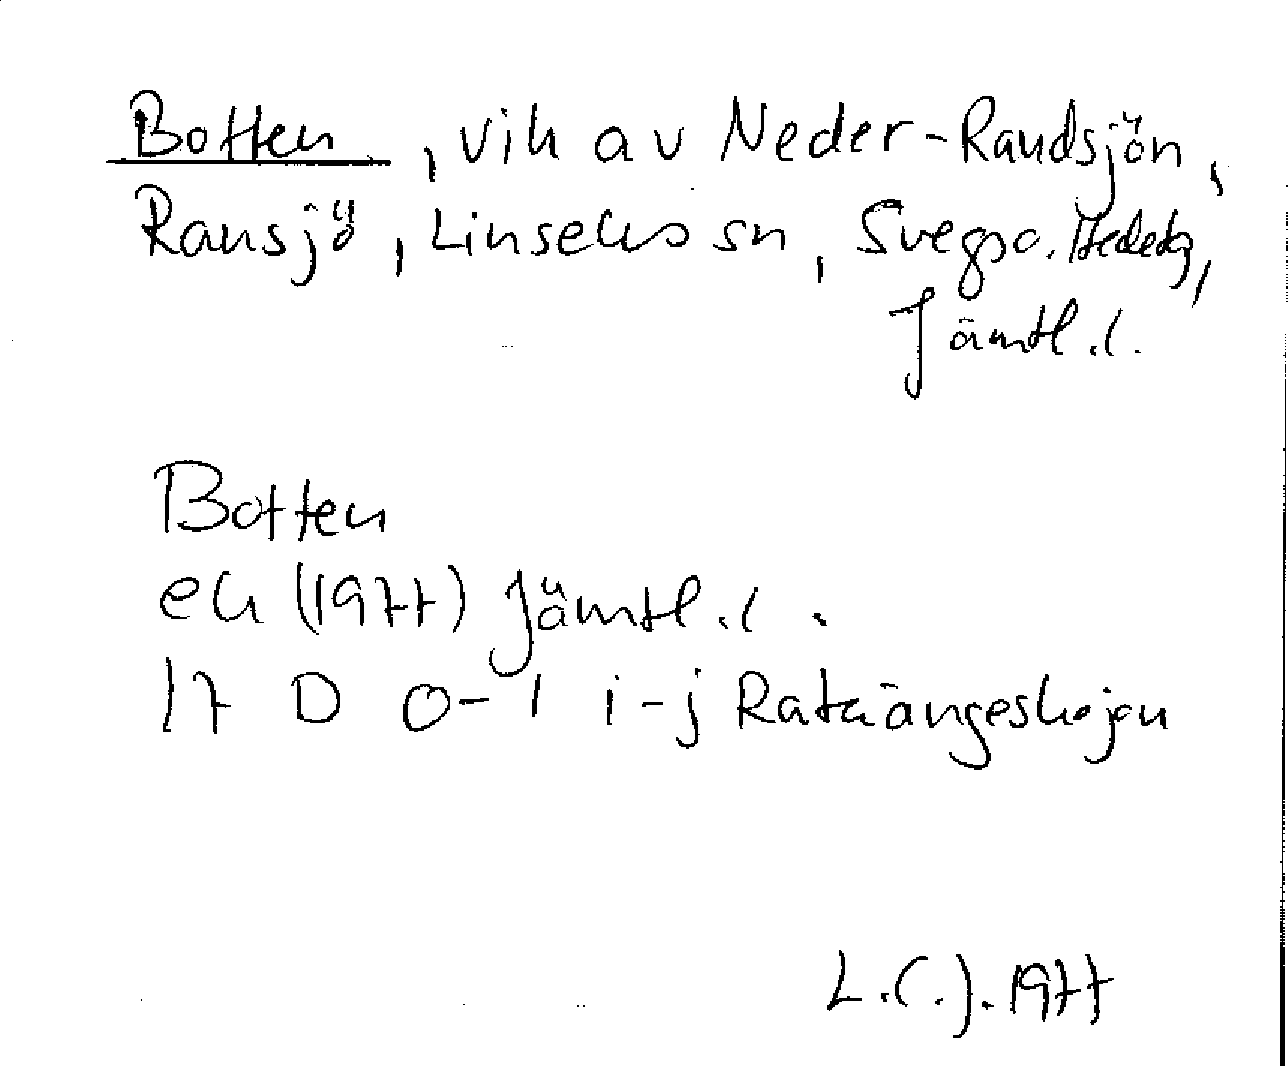 Botten, vik av Neder-Randsjön,
Ransjö, Linsells sn, Svegs o. Hedebg,
Jämtl.l.
Botten
ek (1977) Jämtl.l.
17 D 0-1 i-j Rataängeshöjen
L.C.J. 1977